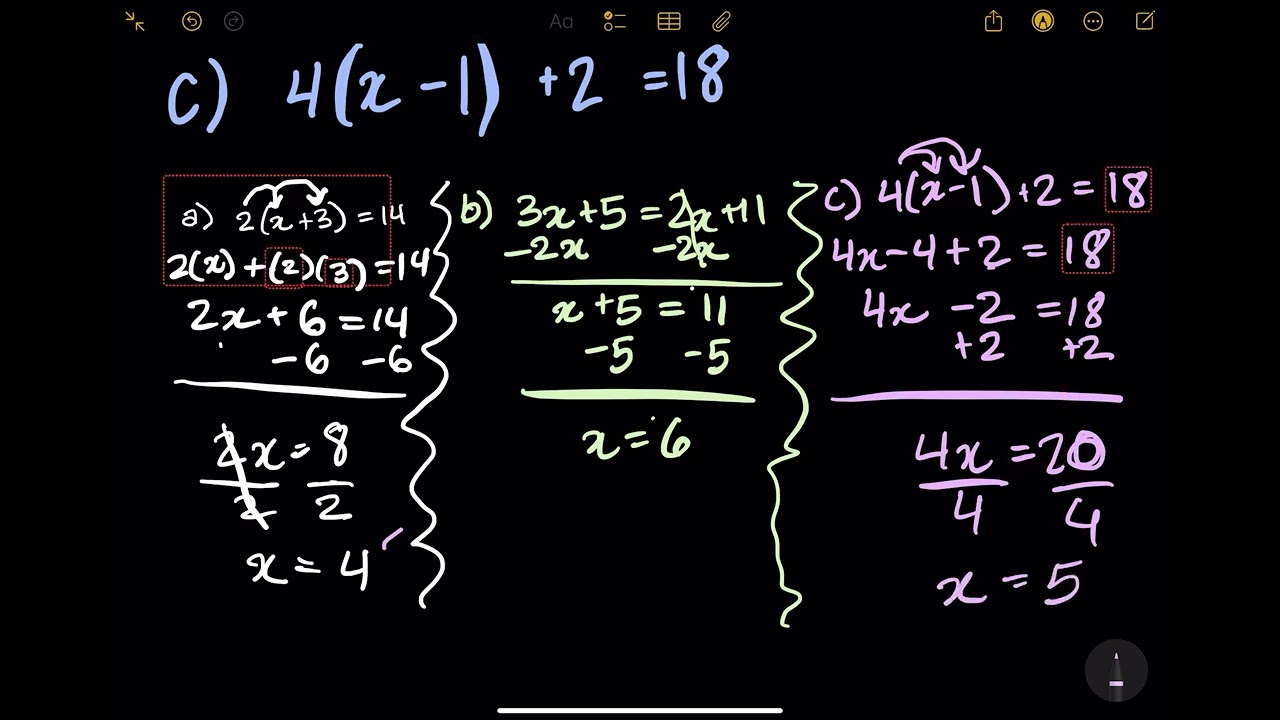 Aa
c) 4(x-1) +2 =18
a) 2(x+3) =14
2(x) +(2)(3) =14
2x+6 =14
-6 -6
2x=8
2 2
x = 4
b) 3x+5 =2x+11
-2x -2x
x+5 = 11
-5 -5
x = 6
c) 4(x-1)+2 = 18
4x-4+2 = 18
4x -2 =18
+2 +2
4x =20
4 4
x = 5